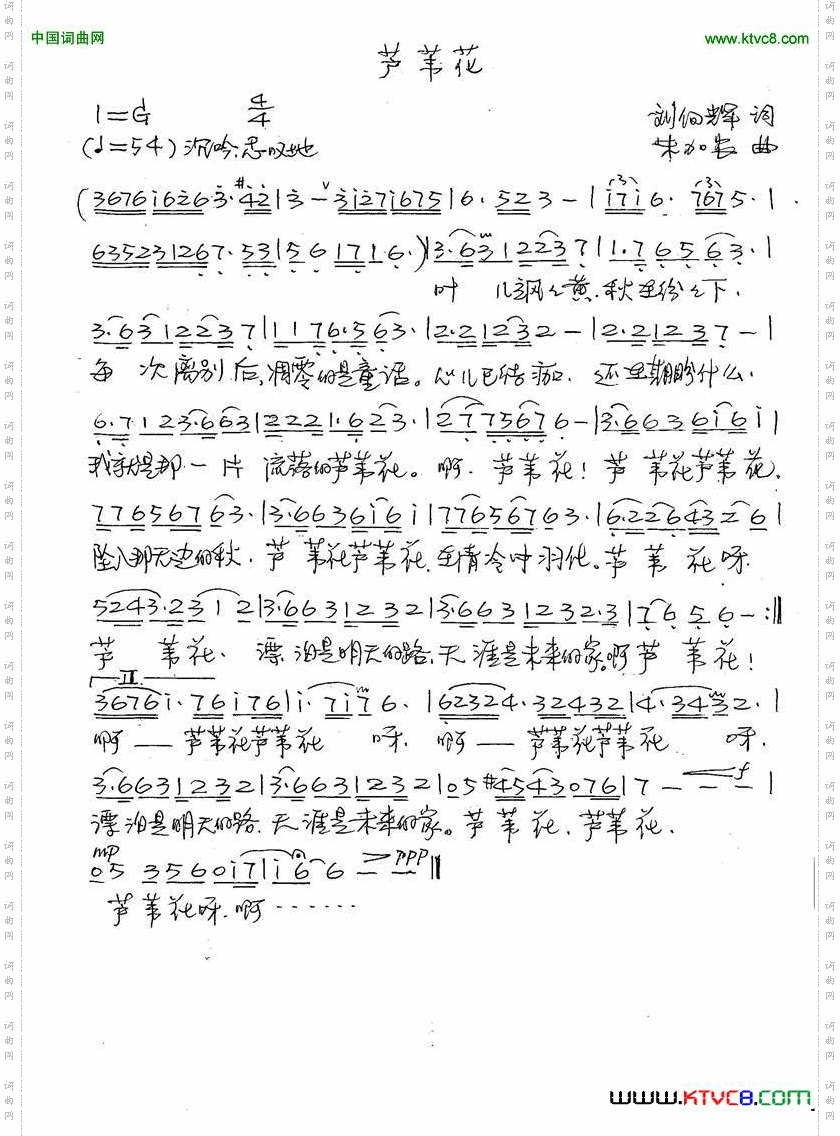 中国词曲网
www.ktvc8.com
芦苇花
1=G 4/4
刘伯辉 词
(♩=54) 沉吟、思叹地
朱加农 曲
(3676i626 3·#42|3-3i27i675|6·523-|i7i6·767 5·|
6352312 67·53|56 1716·)|3·63122 37|1·76563·|
叶 儿飘飘黄,秋里纷纷下,
3·63122 37|1176·563·|2·21232-|2·21237-|
每 次离别后,凋零的是童话。心儿已结痂, 还里期盼什么,
6·7123·663|2221·623·|27756 76-|3·66366i6i|
我就是那一片 流落的芦苇花。啊, 芦苇花! 芦 苇花芦苇花,
7765676 3·|3·66366i6i|7765676 63·|6·226432 6|
坠入那天边的秋, 芦 苇花芦苇花, 在清冷中羽化。芦 苇 花呀
5243·2312|3·6631232|3·663123 2·3|1656-:‖
芦 苇花、 漂泊是明天的路,天涯是未来的家。啊芦 苇花!
II
3676i·76i76|i·7i76·|62324·32432|4·3432·|
啊——芦苇花芦苇花 呀, 啊——芦苇花芦苇花 呀,
3·6631232|3·6631232|05#4543076|7---|
f
漂泊是明天的路,天涯是未来的家。芦苇花,芦苇花,
mp
05 3560i7|i66-- ppp‖
芦苇花呀,啊……
WWW.KTVC8.COM